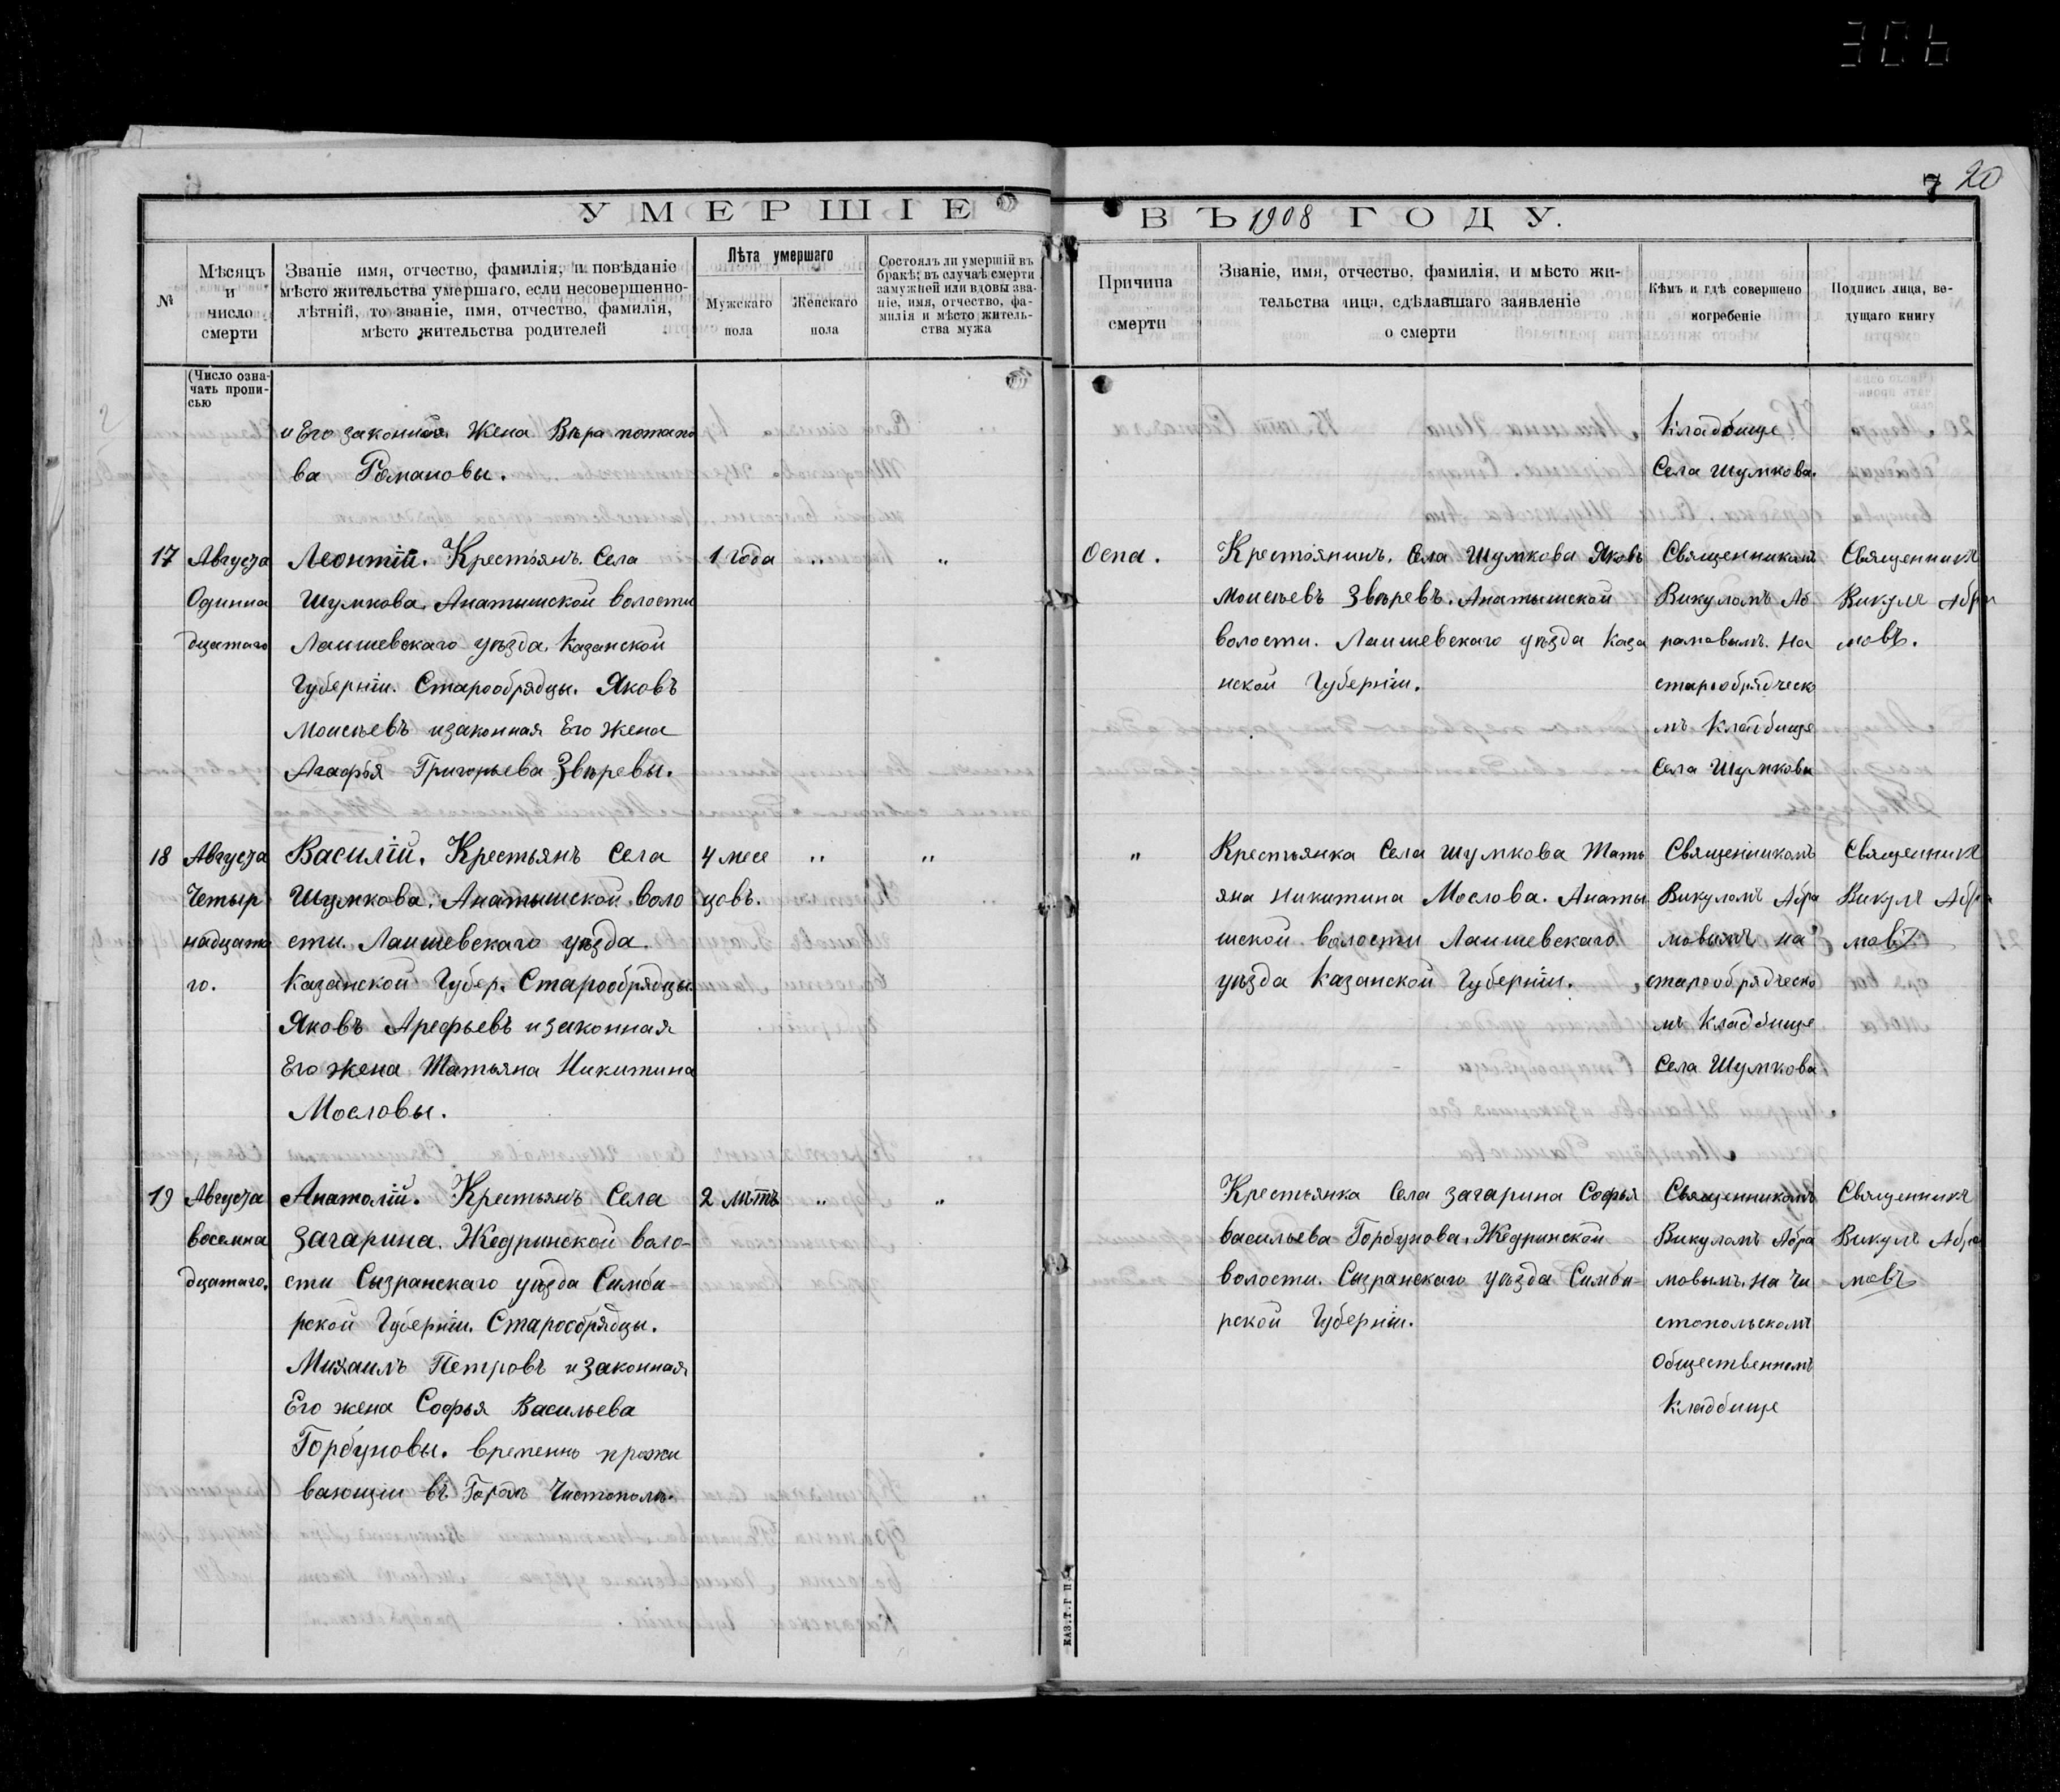 306
7 20
УМЕРШІЕ
ВЪ 1908 ГОДУ.
№
Мѣсяцъ
и
число
смерти
Званіе имя, отчество, фамилія, и повѣданіе
мѣсто жительства умершаго, если несовершенно-
лѣтній, то званіе, имя, отчество, фамилія,
мѣсто жительства родителей
Лѣта умершаго
Мужскаго
пола
Женскаго
пола
Состоялъ ли умершій въ
бракѣ; въ случаѣ смерти
замужней или вдовы зва-
ніе, имя, отчество, фа-
милія и мѣсто житель-
ства мужа
Причина
смерти
Званіе, имя, отчество, фамилія, и мѣсто жи-
тельства лица, сдѣлавшаго заявленіе
о смерти
Кѣмъ и гдѣ совершено
погребеніе
Подпись лица, ве-
дущаго книгу
(Число озна-
чать пропи-
сью
и Его законная Жена Вѣра потапо
ва Романовы.
Кладбище
Села Шумкова.
17
Августа
Одинна
дцатаго
Леонтій. Крестьянъ. Села
Шумкова. Анатышской волости
Лаишевскаго уѣзда. Казанской
Губерніи. Старообрядцы. Яковъ
Моисѣевъ и законная Его жена
Агафья Григорьева Звѣревы.
1 года
"
"
Оспа.
Крестьянинъ. Села Шумкова Яковъ
Моисѣевъ Звѣревъ. Анатышской
волости. Лаишевскаго уѣзда Каза
нской Губерніи.
Священникомъ
Викуломъ Аб
рамовымъ. На
старообрядческо
мъ Кладбище
Села Шумкова
Священникъ
Викулъ Абра
мовъ.
18
Августа
Четыр
надцата
го.
Василій. Крестьянъ Села
Шумкова. Анатышской воло
сти. Лаишевскаго уѣзда
Казанской Губер. Старообрядцы.
Яковъ Арефьевъ и законная
Его жена Татьяна Никитина
Мословы.
4 месе
цовъ.
"
"
"
Крестьянка Села Шумкова Тать
яна Никитина Мослова. Анаты
шской волости Лаишевскаго
уѣзда Казанской Губерніи.
Священникомъ
Викуломъ Абра
мовымъ на
старообрядческо
мъ Кладбище
Села Шумкова
Священникъ
Викулъ Абра
мовъ
19
Августа
восемна
дцатаго.
Анатолій. Крестьянъ Села
Загарина. Жедринской воло-
сти Сызранскаго уѣзда Симби-
рской Губерніи. Старообрядцы.
Михаилъ Петровъ и законная
Его жена Софья Васильева
Горбуновы. временно прожи
вающіи въ Городѣ Чистополѣ.
2 лѣтъ
"
"
Крестьянка Села Загарина Софья
Васильева Горбунова. Жедринской
волости. Сызранскаго уѣзда Симби-
рской Губерніи.
Священникомъ
Викуломъ Абра
мовымъ. На Чи
стопольскомъ
Общественномъ
Кладбище
Священникъ
Викулъ Абра
мовъ
КАЗ.Т.Г.П.